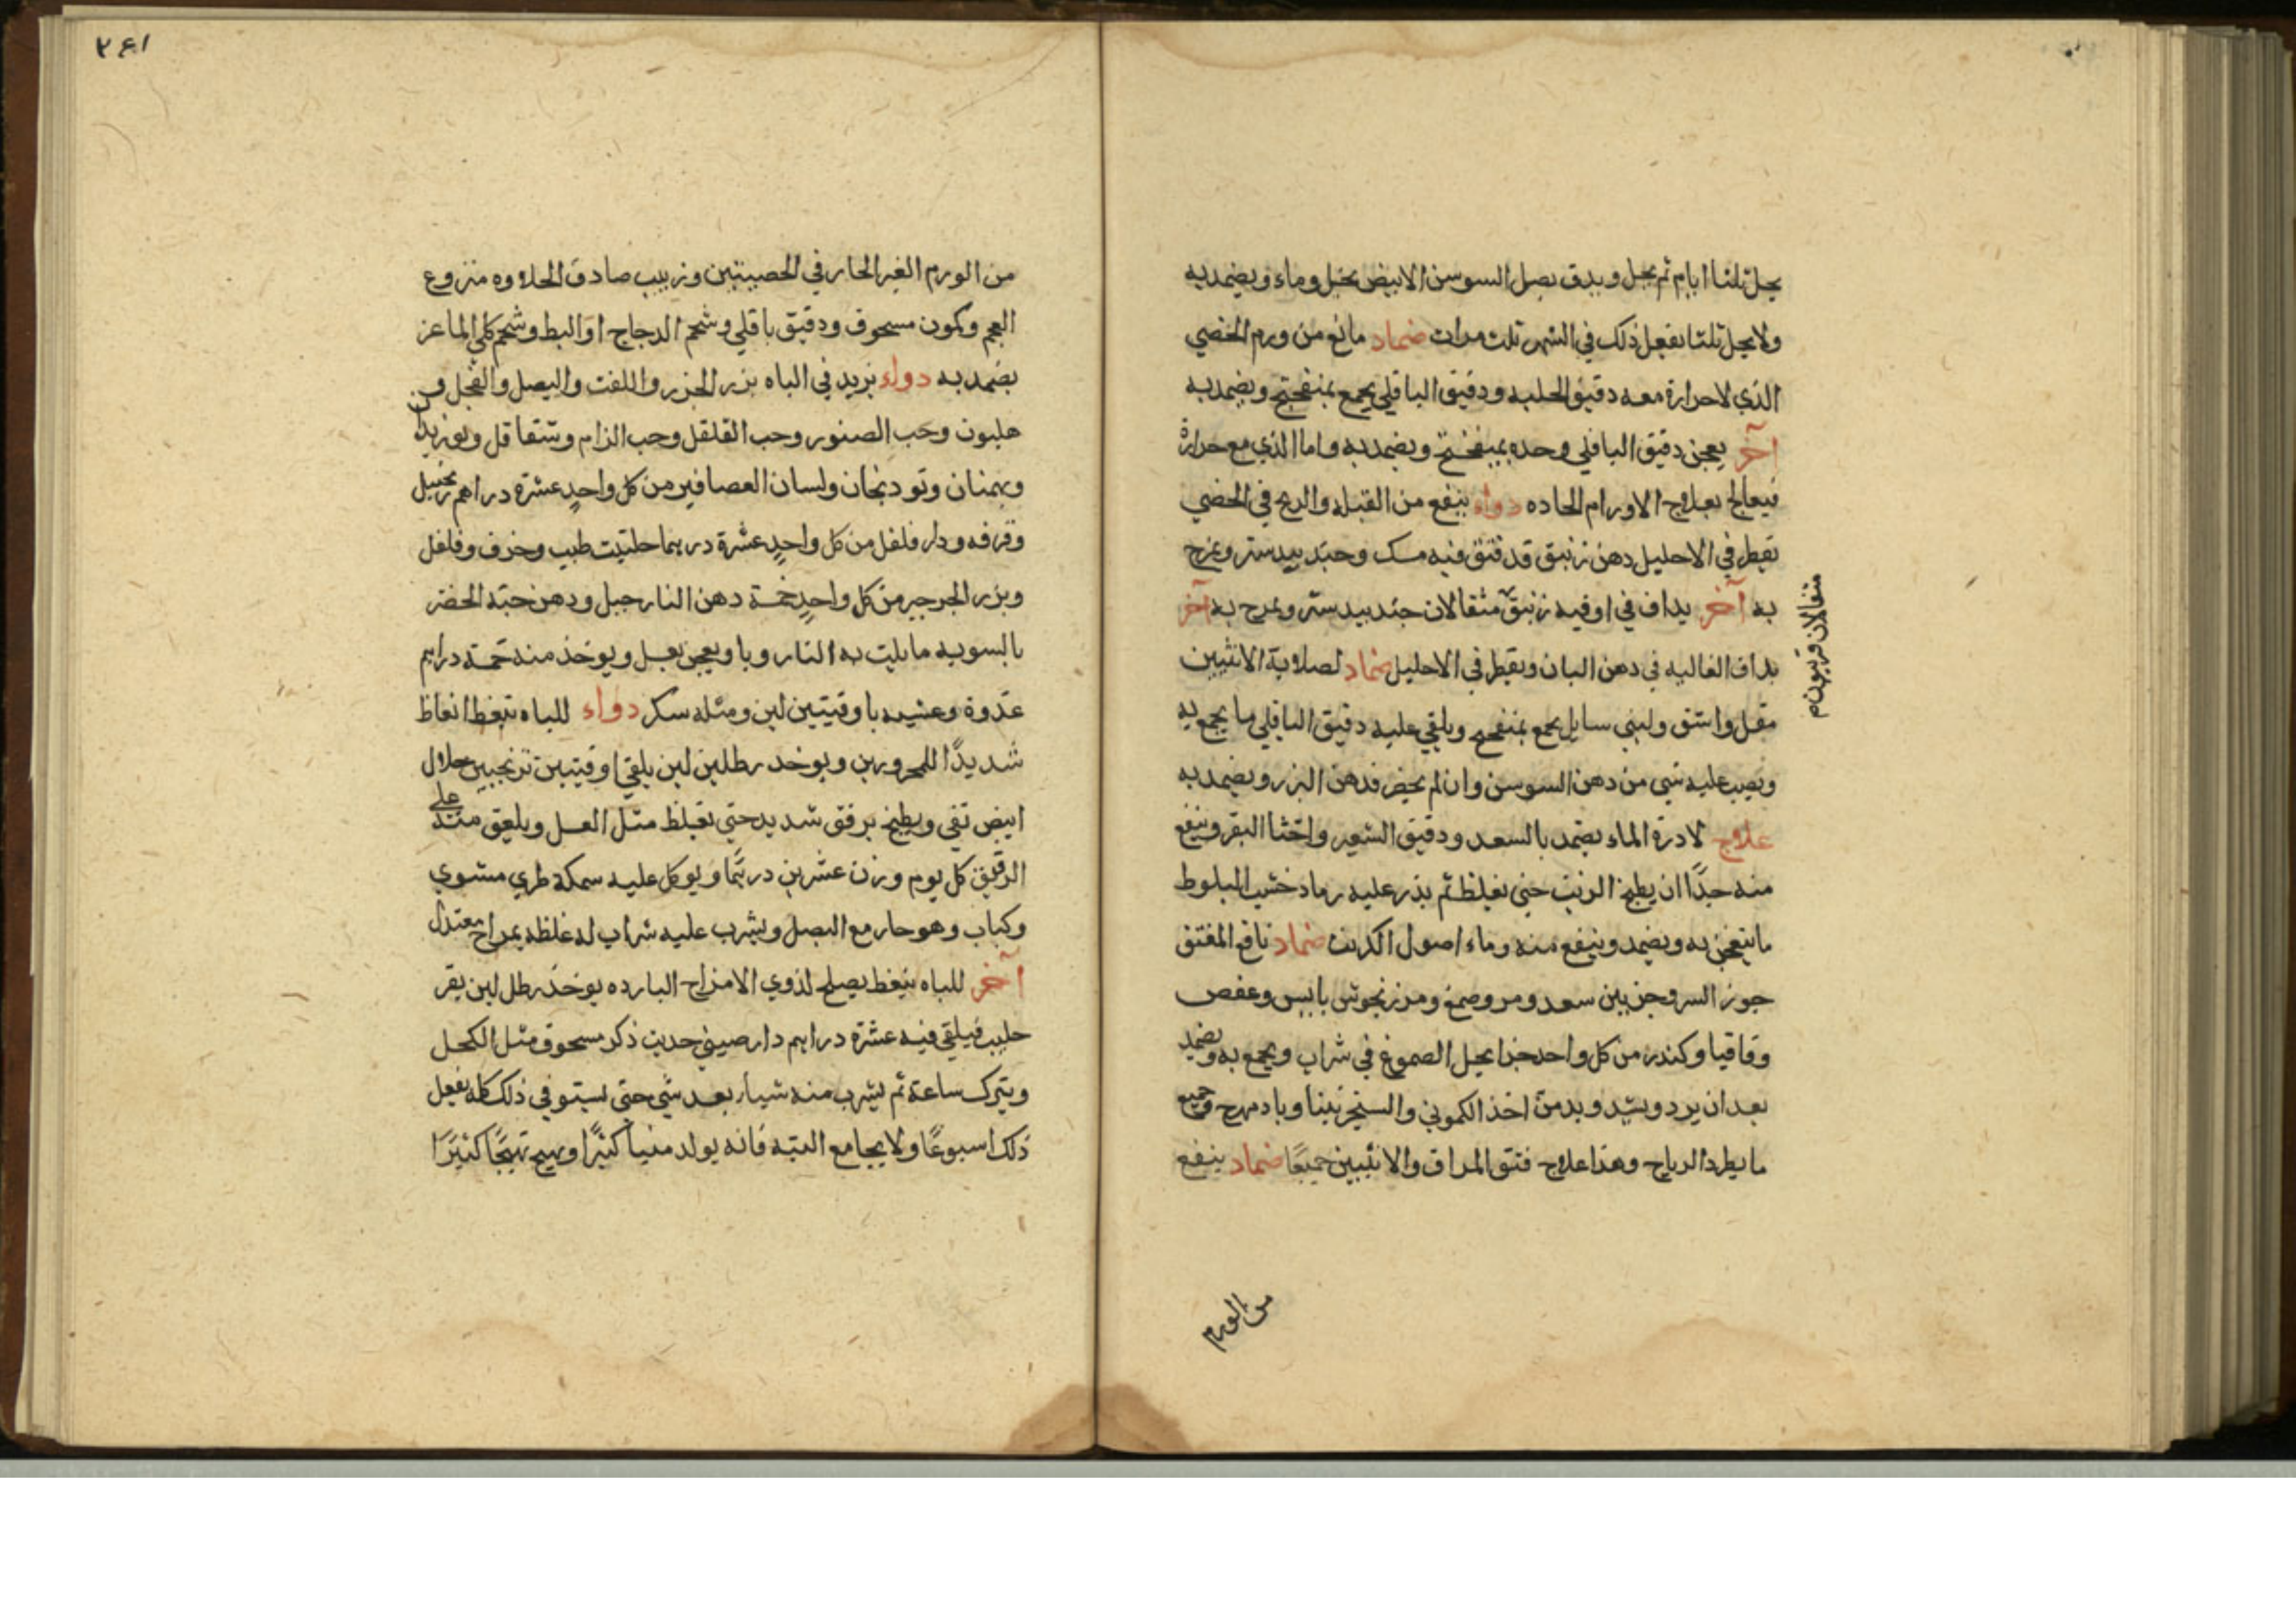 يحل ثلثا ايام ثم يحل ويدق بصل السوسن الابيض بخل وماء ويضمد به
ولا يحل ثلثا يفعل ذلك في الشهر ثلث مرات ضماد مانع من ورم الخصي
الذي لا حرارة معه دقيق الحلبه ودقيق الباقلي يجمع بمنفختج ويضمد به
آخر يعجن دقيق الباقلي وحده بميفختج ويضمد به واما الذي مع حرارة
فيعالج بعلاج الاورام الحاده دواء ينفع من القبله والريح في الخصي
يقطر في الاحليل دهن زنبق قد فتق فيه مسك وجندبيدستر ويمرج
به آخر يداف في اوقيه زنبق مثقالان جندبيدستر ويمرح به آخر
مثقالان فربيون م
يداف الغاليه في دهن البان ويقطر في الاحليل ضماد لصلابة الانثيين
مقل واشق ولبني سايل يجمع بمنفختج ويلقي عليه دقيق الباقلي ما يجمع به
ويصب عليه شي من دهن السوسن وان لم يحضر فدهن البزر ويضمد به
علاج لادرة الماء يضمد بالسعد ودقيق الشعير واخثا البقر وينفع
منه جدًا ان يطبخ الزيت حتي يغلظ ثم يذر عليه رماد خشب البلوط
ما يتعجن به ويضمد وينفع منه وماء اصول الكرنب ضماد نافع للفتق
جوز السرو جزيين سعد ومر وصمغ ومرزنجوش يابس وعفص
وقاقيا وكندر من كل واحد جزا يحل الصموغ في شراب ويجمع به ويضمد
بعد ان يرد ويشد ويدمن اخذ الكموني والسنجرنينا وباد مهرج وجميع
ما يطرد الرياح وهذا علاج فتق المراق والانثيين جميعًا ضماد ينفع
من الورم
٢٤١
من الورم الغير الحار في الخصيتين وزبيب صادق الحلاوه منزوع
العجم وكمون مسحوق ودقيق باقلي وشحم الدجاج او البط وشحم كلي الماعز
يضمد به دواء يزيد في الباه بزر الجزر واللفت والبصل والفجل و
هليون وحب الصنوبر وحب القلقل وحب الزلم وشقاقل وبوزيدان
وبهمنان وتودنجان ولسان العصافير من كل واحدٍ عشرة دراهم زنجبيل
وقرفه ودارفلفل من كل واحدٍ عشرة درهما حلتيت طيب وخرف وفلفل
وبزر الجرجير من كل واحدٍ خمسة دهن النارجيل ودهن حبة الخضر
بالسويه ما يلت به النار وبا ويعجن بعسل ويوخذ منه خمسة دراهم
غدوة وعشيه باوقيتين لبن ومثله سكر دواء للباه ينغظ انغاظ
شديدًا للمحرورين ويوخد رطلين لبن يلقي اوقيتين ترنجبين حلال
ابيض نقي ويطبخ برفق شديد حتي يغلظ مثل العسل ويلعق منه علي
الرقيق كل يوم وزن عشرين درهمًا ويوكل عليه سمكه طري مشوي
وكباب وهو حار مع البصل ويشرب عليه شراب له غلظ بمزاج معتدل
آخر للباه ينغظ يصلح لذوي الامزاج البارده يوخذ رطل لبن بقر
حليب فيلقي فيه عشرة دراهم دارصيني حديث ذكر مسحوق مثل الكحل
ويترك ساعة ثم يشرب منه شيا بعد شي حتي يستوفي ذلك كله يفعل
ذلك اسبوعًا ولا يجامع البته فانه يولد منيا كثيرًا ويهيج تهيجًا كثيرًا